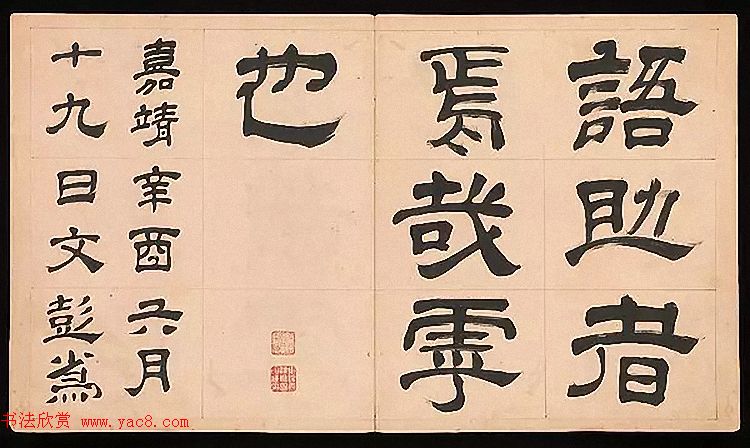 語助者
焉哉虖
也
嘉靖辛酉六月
十九日文彭寫
书法欣赏 www.yac8.com